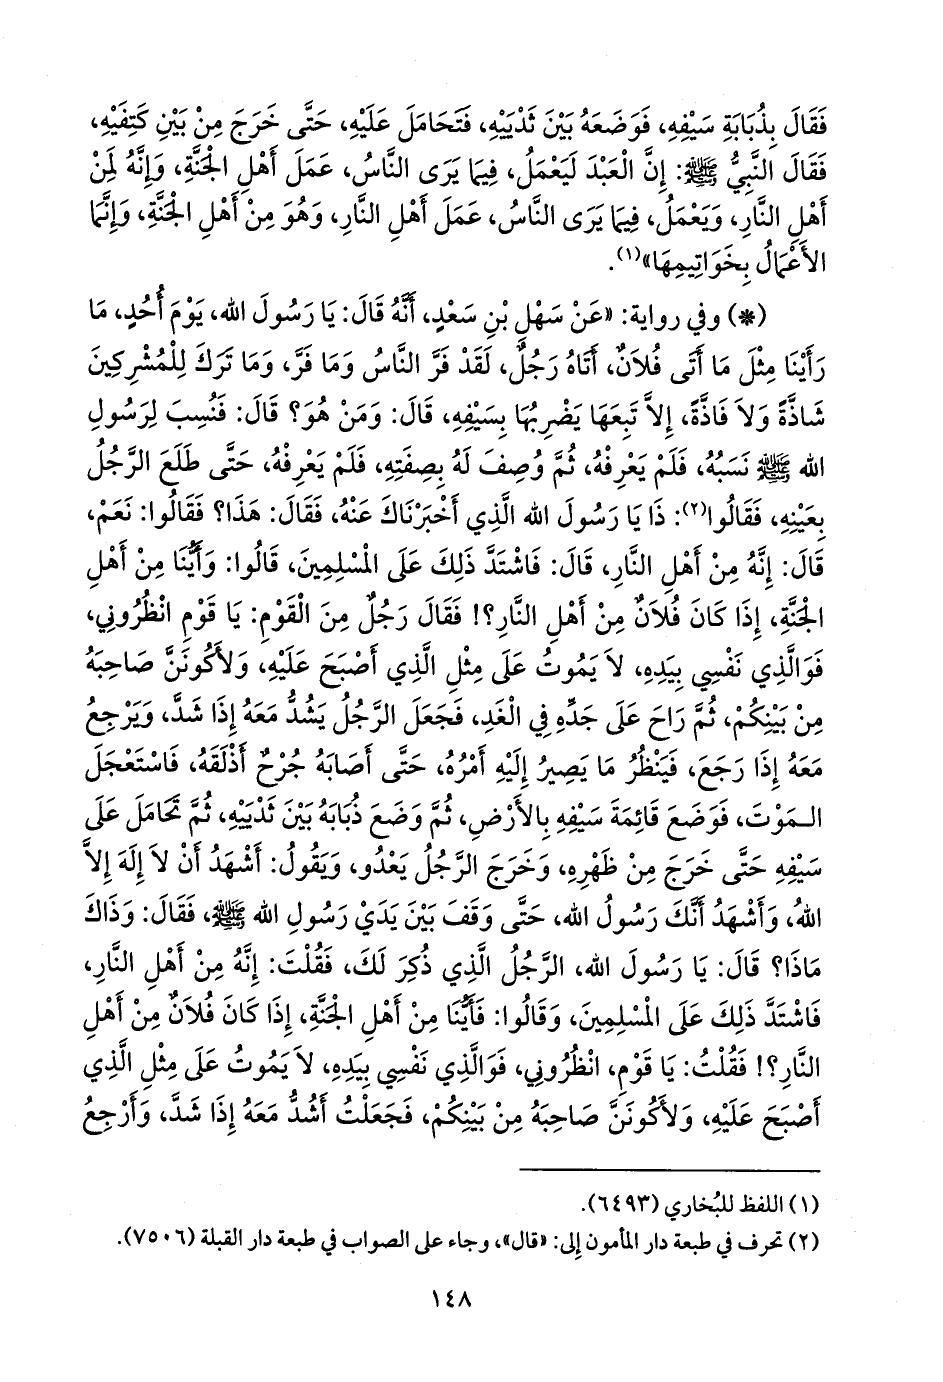 فَقَالَ بِذُبَابَةِ سَيْفِهِ، فَوَضَعَهُ بَيْنَ ثَدْيَيْهِ، فَتَحَامَلَ عَلَيْهِ، حَتَّى خَرَجَ مِنْ بَيْنِ كَتِفَيْهِ،
فَقَالَ النَّبِيُّ ﷺ: إِنَّ الْعَبْدَ لَيَعْمَلُ، فِيمَا يَرَى النَّاسُ، عَمَلَ أَهْلِ الْجَنَّةِ، وَإِنَّهُ لَمِنْ
أَهْلِ النَّارِ، وَيَعْمَلُ، فِيمَا يَرَى النَّاسُ، عَمَلَ أَهْلِ النَّارِ، وَهُوَ مِنْ أَهْلِ الْجَنَّةِ، وَإِنَّمَا
الأَعْمَالُ بِخَوَاتِيمِهَا»(١).
(*) وفي رواية: «عَنْ سَهْلِ بْنِ سَعْدٍ، أَنَّهُ قَالَ: يَا رَسُولَ الله، يَوْمَ أُحُدٍ، مَا
رَأَيْنَا مِثْلَ مَا أَتَى فُلاَنٌ، أَتَاهُ رَجُلٌ، لَقَدْ فَرَّ النَّاسُ وَمَا فَرَّ، وَمَا تَرَكَ لِلْمُشْرِكِينَ
شَاذَّةً وَلاَ فَاذَّةً، إِلاَّ تَبِعَهَا يَضْرِبُهَا بِسَيْفِهِ، قَالَ: وَمَنْ هُوَ؟ قَالَ: فَنُسِبَ لِرَسُولِ
الله ﷺ نَسَبُهُ، فَلَمْ يَعْرِفْهُ، ثُمَّ وُصِفَ لَهُ بِصِفَتِهِ، فَلَمْ يَعْرِفْهُ، حَتَّى طَلَعَ الرَّجُلُ
بِعَيْنِهِ، فَقَالُوا(٢): ذَا يَا رَسُولَ الله الَّذِي أَخْبَرْنَاكَ عَنْهُ، فَقَالَ: هَذَا؟ فَقَالُوا: نَعَمْ،
قَالَ: إِنَّهُ مِنْ أَهْلِ النَّارِ، قَالَ: فَاشْتَدَّ ذَلِكَ عَلَى الْمُسْلِمِينَ، قَالُوا: وَأَيُّنَا مِنْ أَهْلِ
الْجَنَّةِ، إِذَا كَانَ فُلاَنٌ مِنْ أَهْلِ النَّارِ؟! فَقَالَ رَجُلٌ مِنَ الْقَوْمِ: يَا قَوْمِ انْظُرُونِي،
فَوَالَّذِي نَفْسِي بِيَدِهِ، لاَ يَمُوتُ عَلَى مِثْلِ الَّذِي أَصْبَحَ عَلَيْهِ، وَلأَكُونَنَّ صَاحِبَهُ
مِنْ بَيْنِكُمْ، ثُمَّ رَاحَ عَلَى جَدِّهِ فِي الْغَدِ، فَجَعَلَ الرَّجُلُ يَشُدُّ مَعَهُ إِذَا شَدَّ، وَيَرْجِعُ
مَعَهُ إِذَا رَجَعَ، فَيَنْظُرُ مَا يَصِيرُ إِلَيْهِ أَمْرُهُ، حَتَّى أَصَابَهُ جُرْحٌ أَذْلَقَهُ، فَاسْتَعْجَلَ
الـمَوْتَ، فَوَضَعَ قَائِمَةَ سَيْفِهِ بِالأَرْضِ، ثُمَّ وَضَعَ ذُبَابَهُ بَيْنَ ثَدْيَيْهِ، ثُمَّ تَحَامَلَ عَلَى
سَيْفِهِ حَتَّى خَرَجَ مِنْ ظَهْرِهِ، وَخَرَجَ الرَّجُلُ يَعْدُو، وَيَقُولُ: أَشْهَدُ أَنْ لاَ إِلَهَ إِلاَّ
اللهُ، وَأَشْهَدُ أَنَّكَ رَسُولُ الله، حَتَّى وَقَفَ بَيْنَ يَدَيْ رَسُولِ الله ﷺ، فَقَالَ: وَذَاكَ
مَاذَا؟ قَالَ: يَا رَسُولَ الله، الرَّجُلُ الَّذِي ذُكِرَ لَكَ، فَقُلْتَ: إِنَّهُ مِنْ أَهْلِ النَّارِ،
فَاشْتَدَّ ذَلِكَ عَلَى الْمُسْلِمِينَ، وَقَالُوا: فَأَيُّنَا مِنْ أَهْلِ الْجَنَّةِ، إِذَا كَانَ فُلاَنٌ مِنْ أَهْلِ
النَّارِ؟! فَقُلْتُ: يَا قَوْمِ، انْظُرُونِي، فَوَالَّذِي نَفْسِي بِيَدِهِ، لاَ يَمُوتُ عَلَى مِثْلِ الَّذِي
أَصْبَحَ عَلَيْهِ، وَلأَكُونَنَّ صَاحِبَهُ مِنْ بَيْنِكُمْ، فَجَعَلْتُ أَشُدُّ مَعَهُ إِذَا شَدَّ، وَأَرْجِعُ
(١) اللفظ للبُخاري (٦٤٩٣).
(٢) تحرف في طبعة دار المأمون إلى: «قال»، وجاء على الصواب في طبعة دار القبلة (٧٥٠٦).
١٤٨